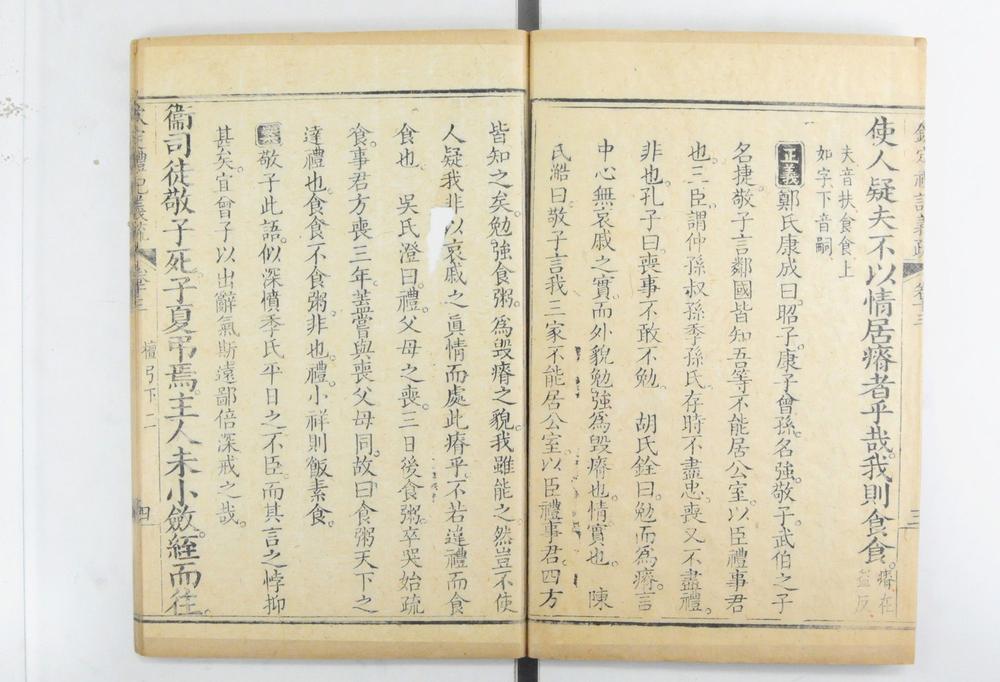 欽定禮記義疏 卷十三 三
使人疑夫不以情居瘠者乎哉我則食食。瘠在益反
夫音扶食食上
如字下音嗣
正義鄭氏康成曰昭子康子曾孫名強敬子武伯之子
名捷。敬子言鄰國皆知吾等不能居公室。以臣禮事君
也三臣。謂仲孫叔孫季孫氏。存時不盡忠。喪又不盡禮。
非也。孔子曰。喪事不敢不勉。 胡氏銓曰。勉而為瘠。言
中心無哀戚之實。而外貌勉強為毀瘠也。情實也。 陳
氏澔曰。敬子言我三家不能居公室。以臣禮事君。四方
皆知之矣。勉強食粥。為毀瘠之貌。我雖能之。然豈不使
人疑我非以哀戚之真情而處此瘠乎。不若違禮而食
食也。 吳氏澄曰。禮。父母之喪。三日後食粥。卒哭始疏
食。事君方喪三年。葢嘗與喪父母同。故曰食粥天下之
達禮也。食食不食粥。非也。禮。小祥則飯素食。
敬子此語。似深憤季氏平日之不臣。而其言之悖抑
甚矣。宜曾子以出辭氣斯遠鄙倍深戒之哉。
衞司徒敬子死。子夏弔焉。主人未小斂。絰而往。
欽定禮記義疏 卷十三 檀弓下二 四